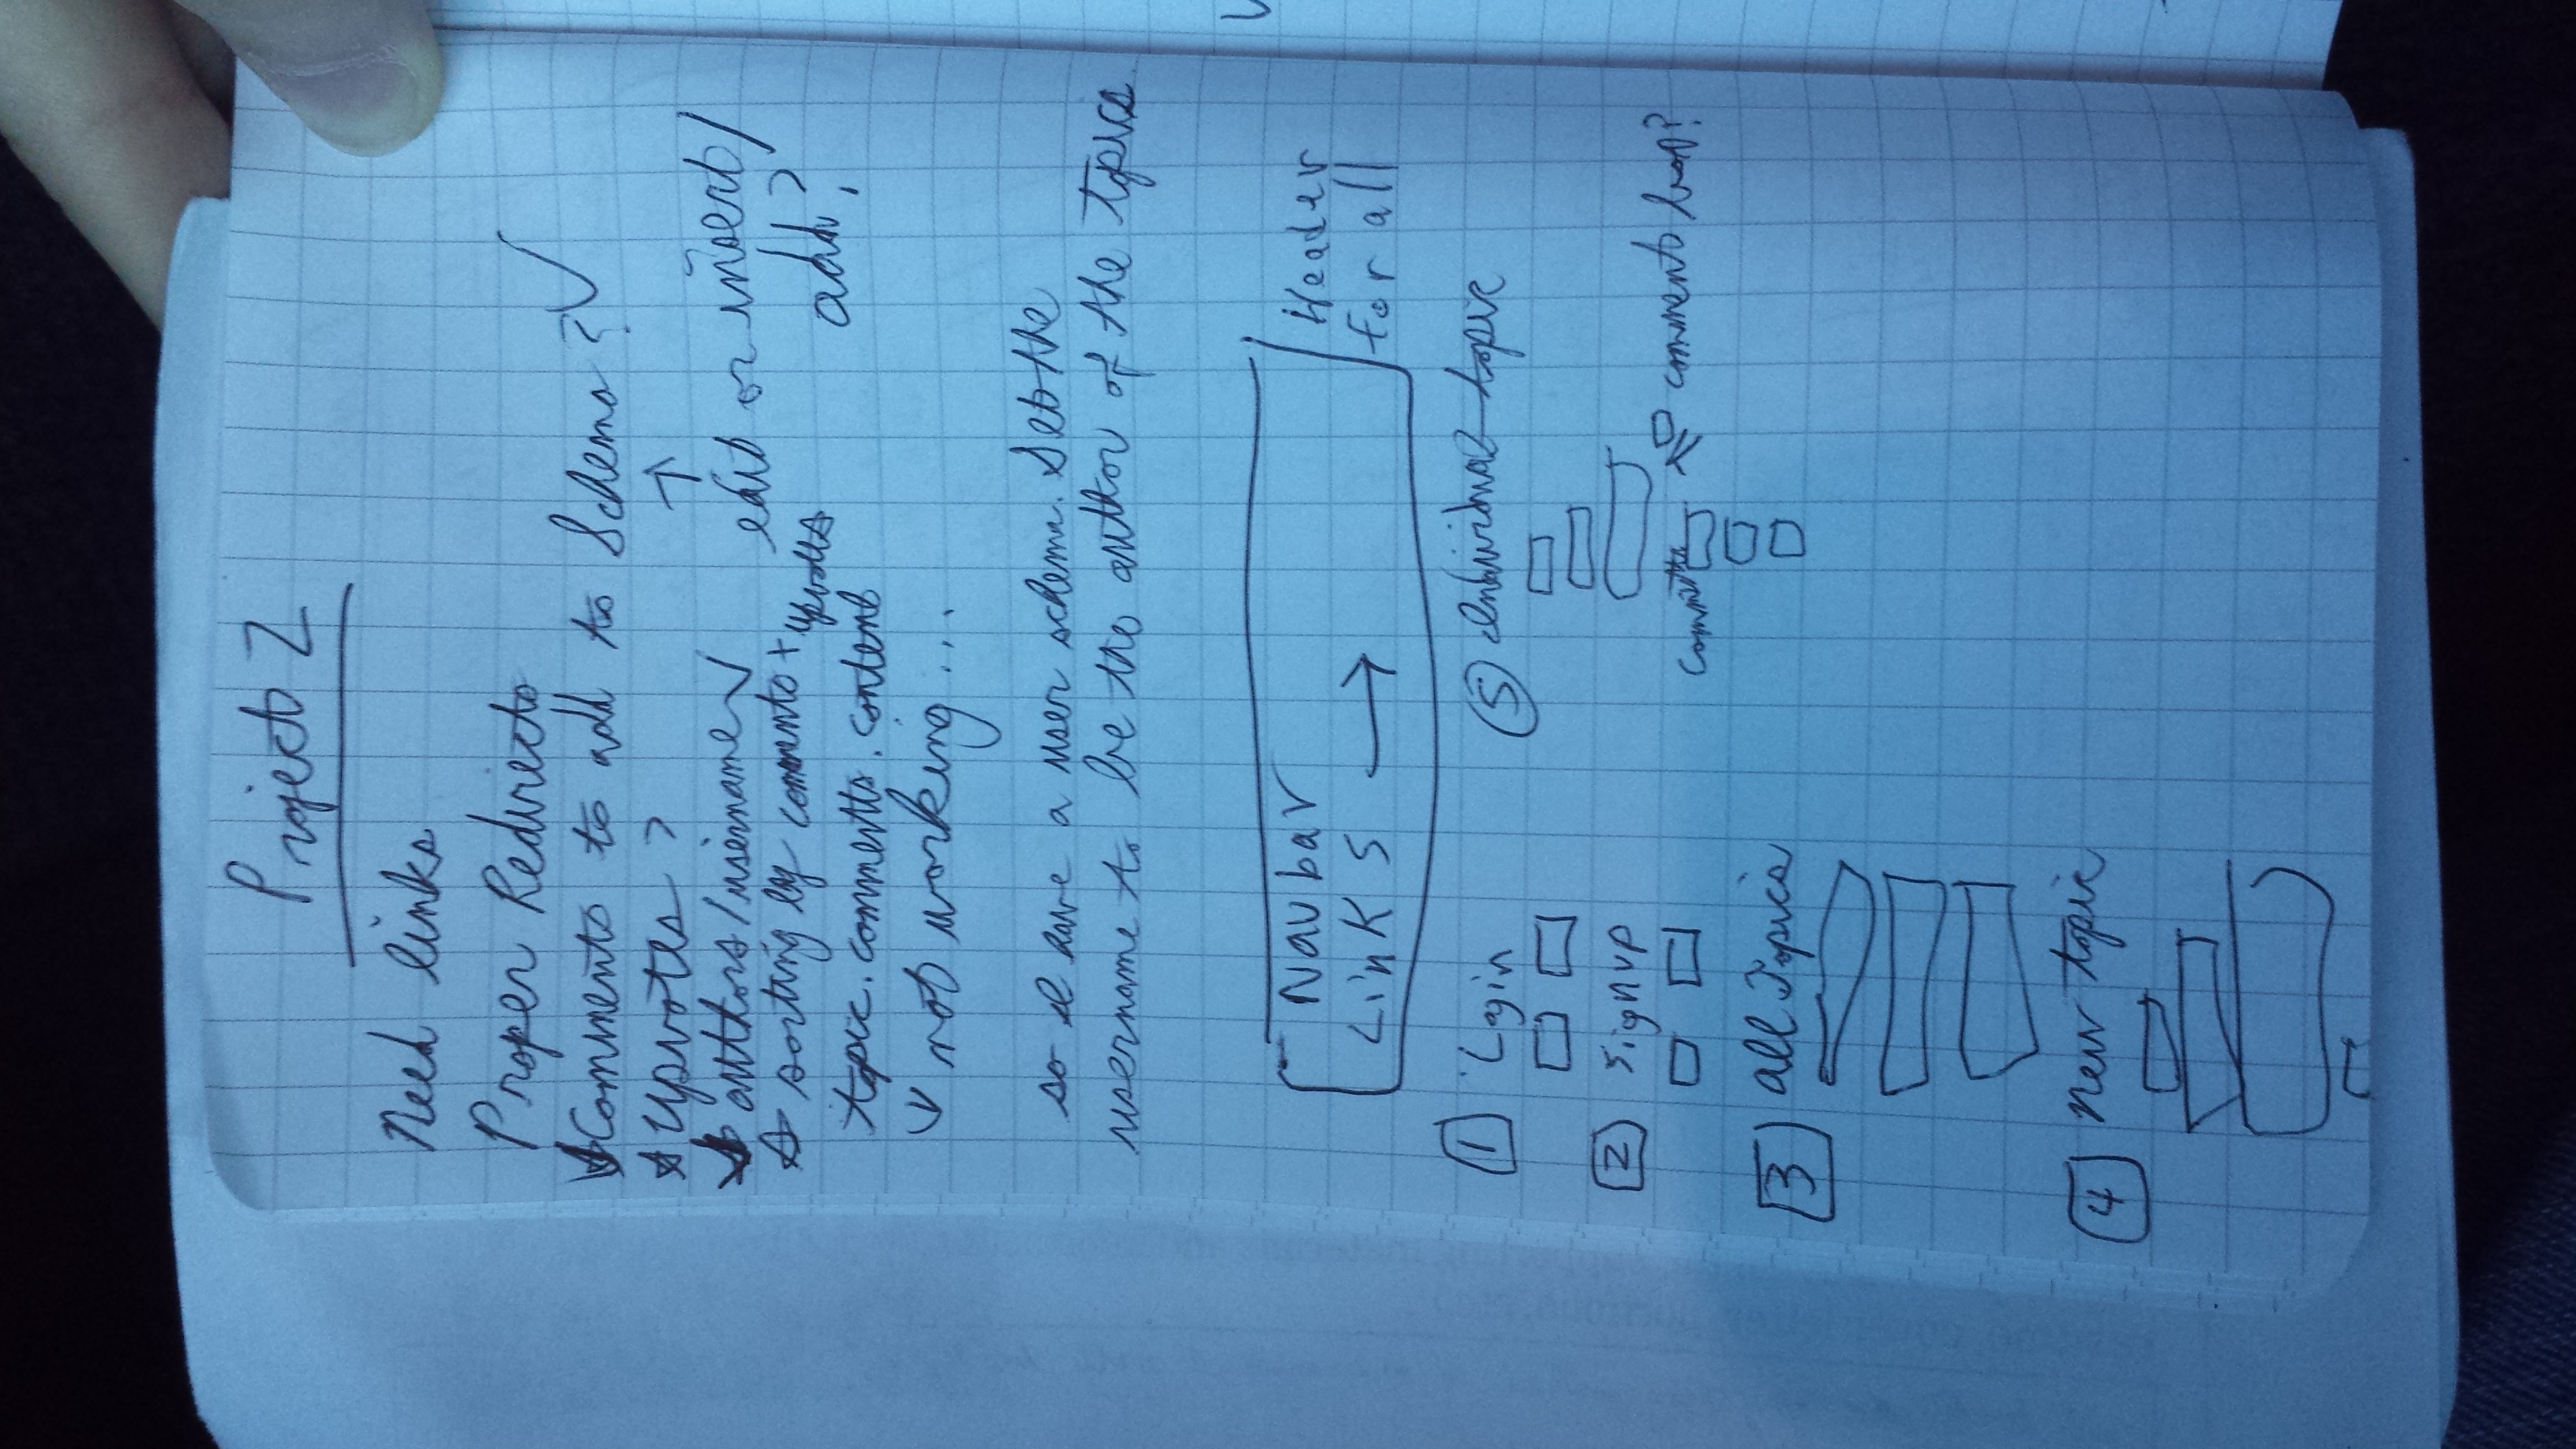 Project 2
Need links
Proper Redirects
Comments to add to Schema ?
Upvotes ?
authors/username
edit or insert/
add?
sorting by comments + upvotes
topic.comments.content
not working ...
so I have a user schema. Set the
username to be the author of the topics.
Navbar
Links →
Header
for all
1 Login
2 Signup
3 all Topics
4 New topic
5 Individual topic
comments
comments